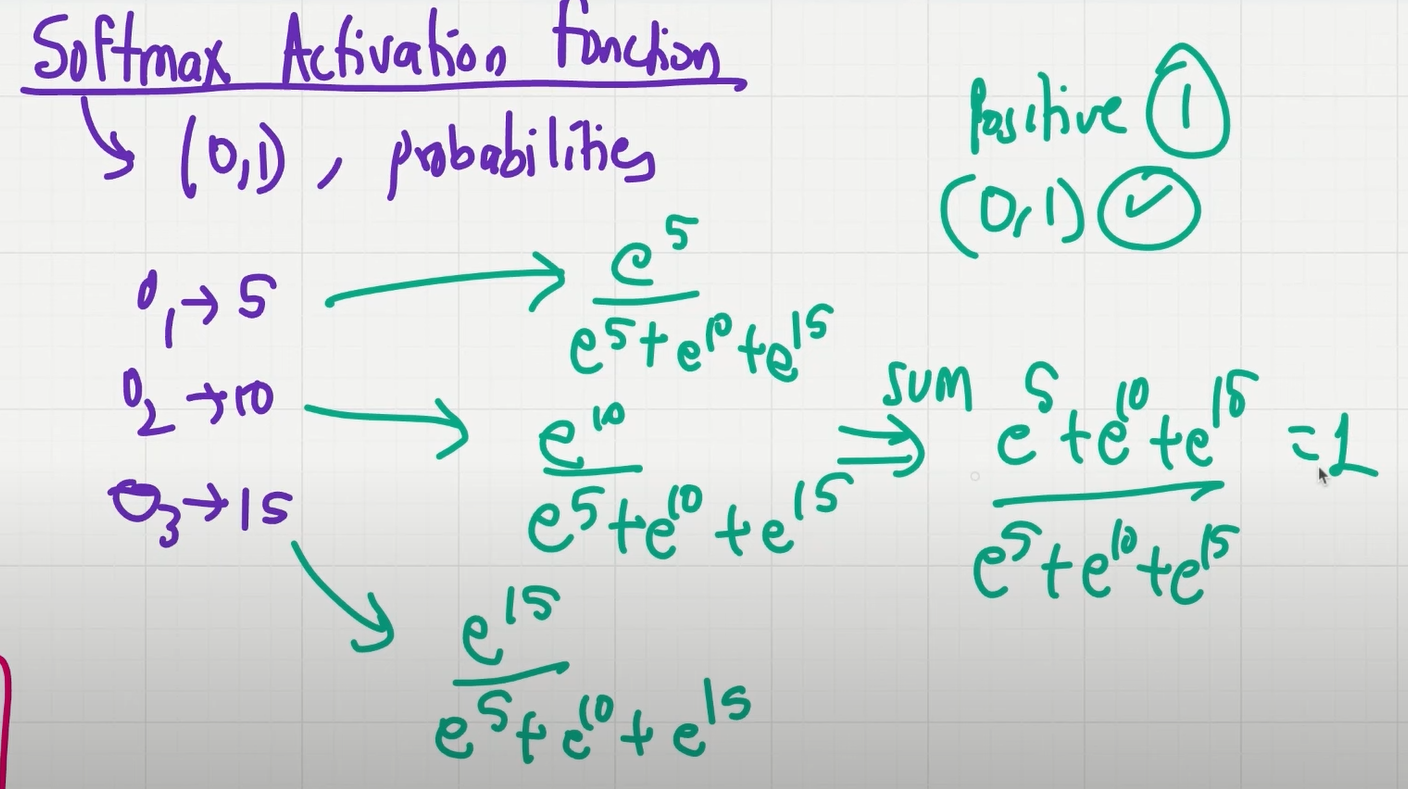 Softmax Activation function
(0,1), probabilities
Positive 1
(0,1) ✓
O₁ → 5
e^5
e^5 + e^10 + e^15
O₂ → 10
e^10
e^5 + e^10 + e^15
O₃ → 15
e^15
e^5 + e^10 + e^15
sum
e^5 + e^10 + e^15 = 1
e^5 + e^10 + e^15